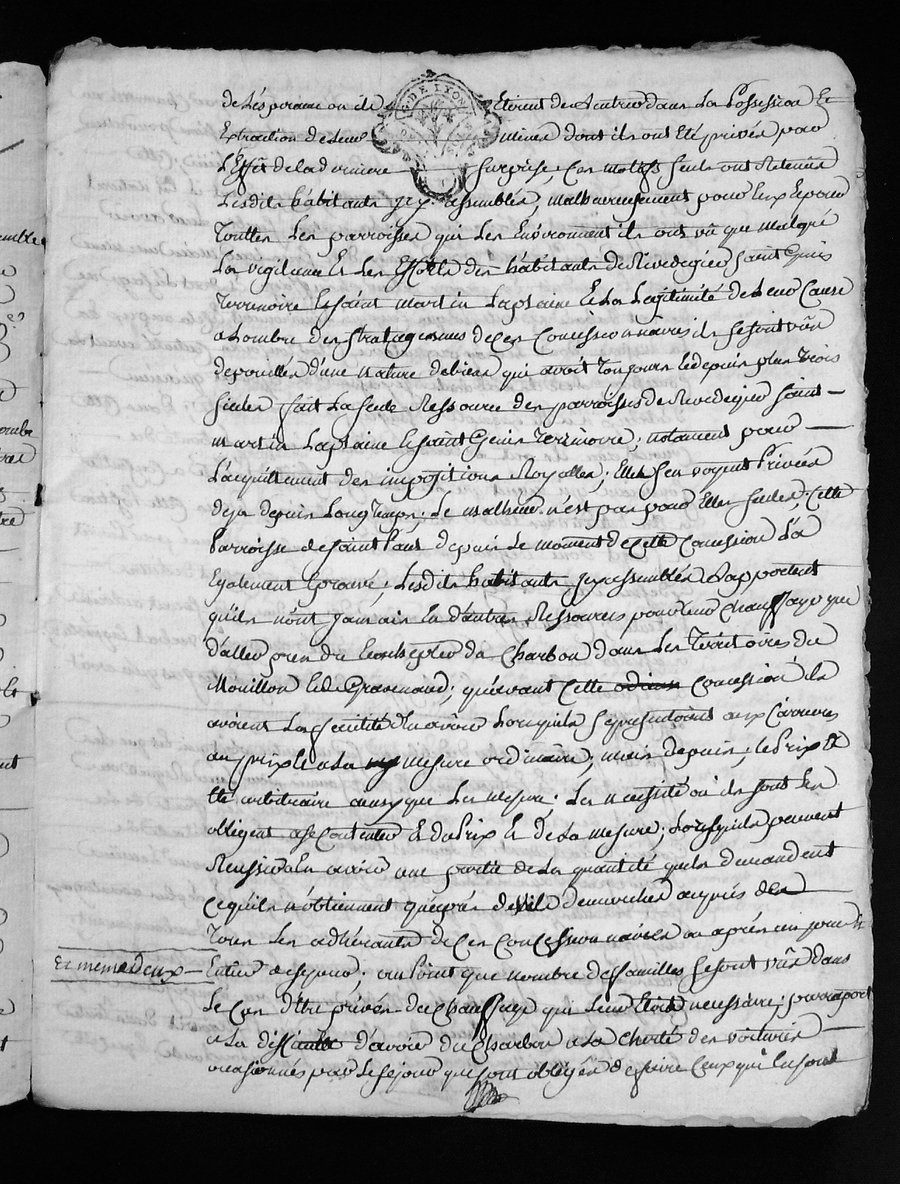 DE LYON
de Lésperance ou ils Etoient de Rentrer dans La Possession Et
Extraction de Leurs mines dont ils ont Eté privés pour
L'Effet de la derniere surprise, Ces motifs seuls ont Retenus
Lesdits habitants icy assemblés, malheureusement pour Eux Et pour
Touttes Les parroisses qui Les Environnent ils ont vû que malgré
La vigilance Et Les Efforts des habitants de Rivedegier Saint Genis
Terrenoire Et Saint martin Laplaine Et La Legitimité de Leur Cause
a Lombre des stratagemes de Ces Concessionnaires ils se sont vûs
depouillés d'une nature de biens qui avoit Toujours Et depuis plus Trois
siecles fait La seule Ressource des parroisses de Rivedegier Saint
martin Laplaine Et Saint Genis Terrenoire, notament pour
L'acquittement des impositions Royalles; Elles s'en voyent Privées
deja depuis Long Temps; Le malheur n'est pas pour Elles seules; Cette
Parroisse de Saint Paul depuis Le moment de Cette Concession L'a
Egalement Eprouvé; Lesdits habitants icy assemblés Rapportent
qu'ils n'ont Jamais Eu d'autres Ressources pour Leur Chauffage que
d'aller prendre du Charbon dans Les Territoires du
Mouillon Et du Gravenand; qu'avant Cette odieuse Concession ils
avoient La facilité d'en avoir Lorsqu'ils se presentoient aux Carrieres
au prix Et a La mesure ordinaire, mais depuis, Le Prix Et
Eté arbitraire ainsy que La mesure. La necessité ou ils sont Les
obligent a se Contenter Et du Prix Et de La mesure; Lorsqu'ils peuvent
Reussir a En avoir une partie de La quantité qu'ils demandent
Ce qu'ils n'obtiennent qu'après de viles demarches auprès de
Tous Les adhérants de Ces Concessionnaires ou après un jour
Et meme deux
Entier de sejour; au Point que nombre de familles se sont vûs dans
Le Cas d'être privés du Chauffage qui Leur Etoit necessaire; par raport
a La difficulté d'avoir du Charbon a La Cherté des voitures
occasionnés par Le sejour que sont obligés de faire Ceux qui Les font